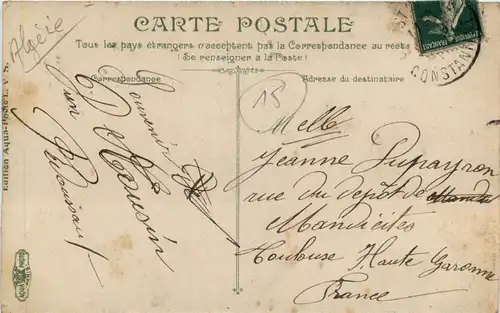 Algérie
CARTE POSTALE
Tous les pays étrangers n'acceptent pas la Correspondance au recto
(Se renseigner à la Poste)
Correspondance
Adresse du destinataire
CONSTANT
15
Souvenir
D'un
Cousin
Melle
Jeanne Dupayron
rue du depôt de
Mandicités
Toulouse Haute Garonne
France